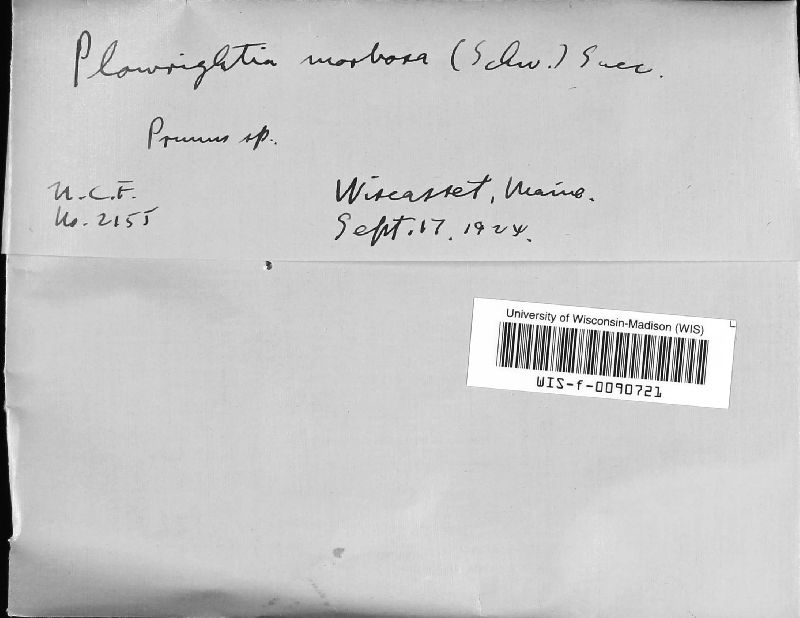 Plowrightia morbosa (Schw.) Sacc.
Prunus sp.
N.C.F.
No. 2155
Wiscasset, Maine.
Sept. 17, 1924.
University of Wisconsin-Madison (WIS)
WIS-f-0090721